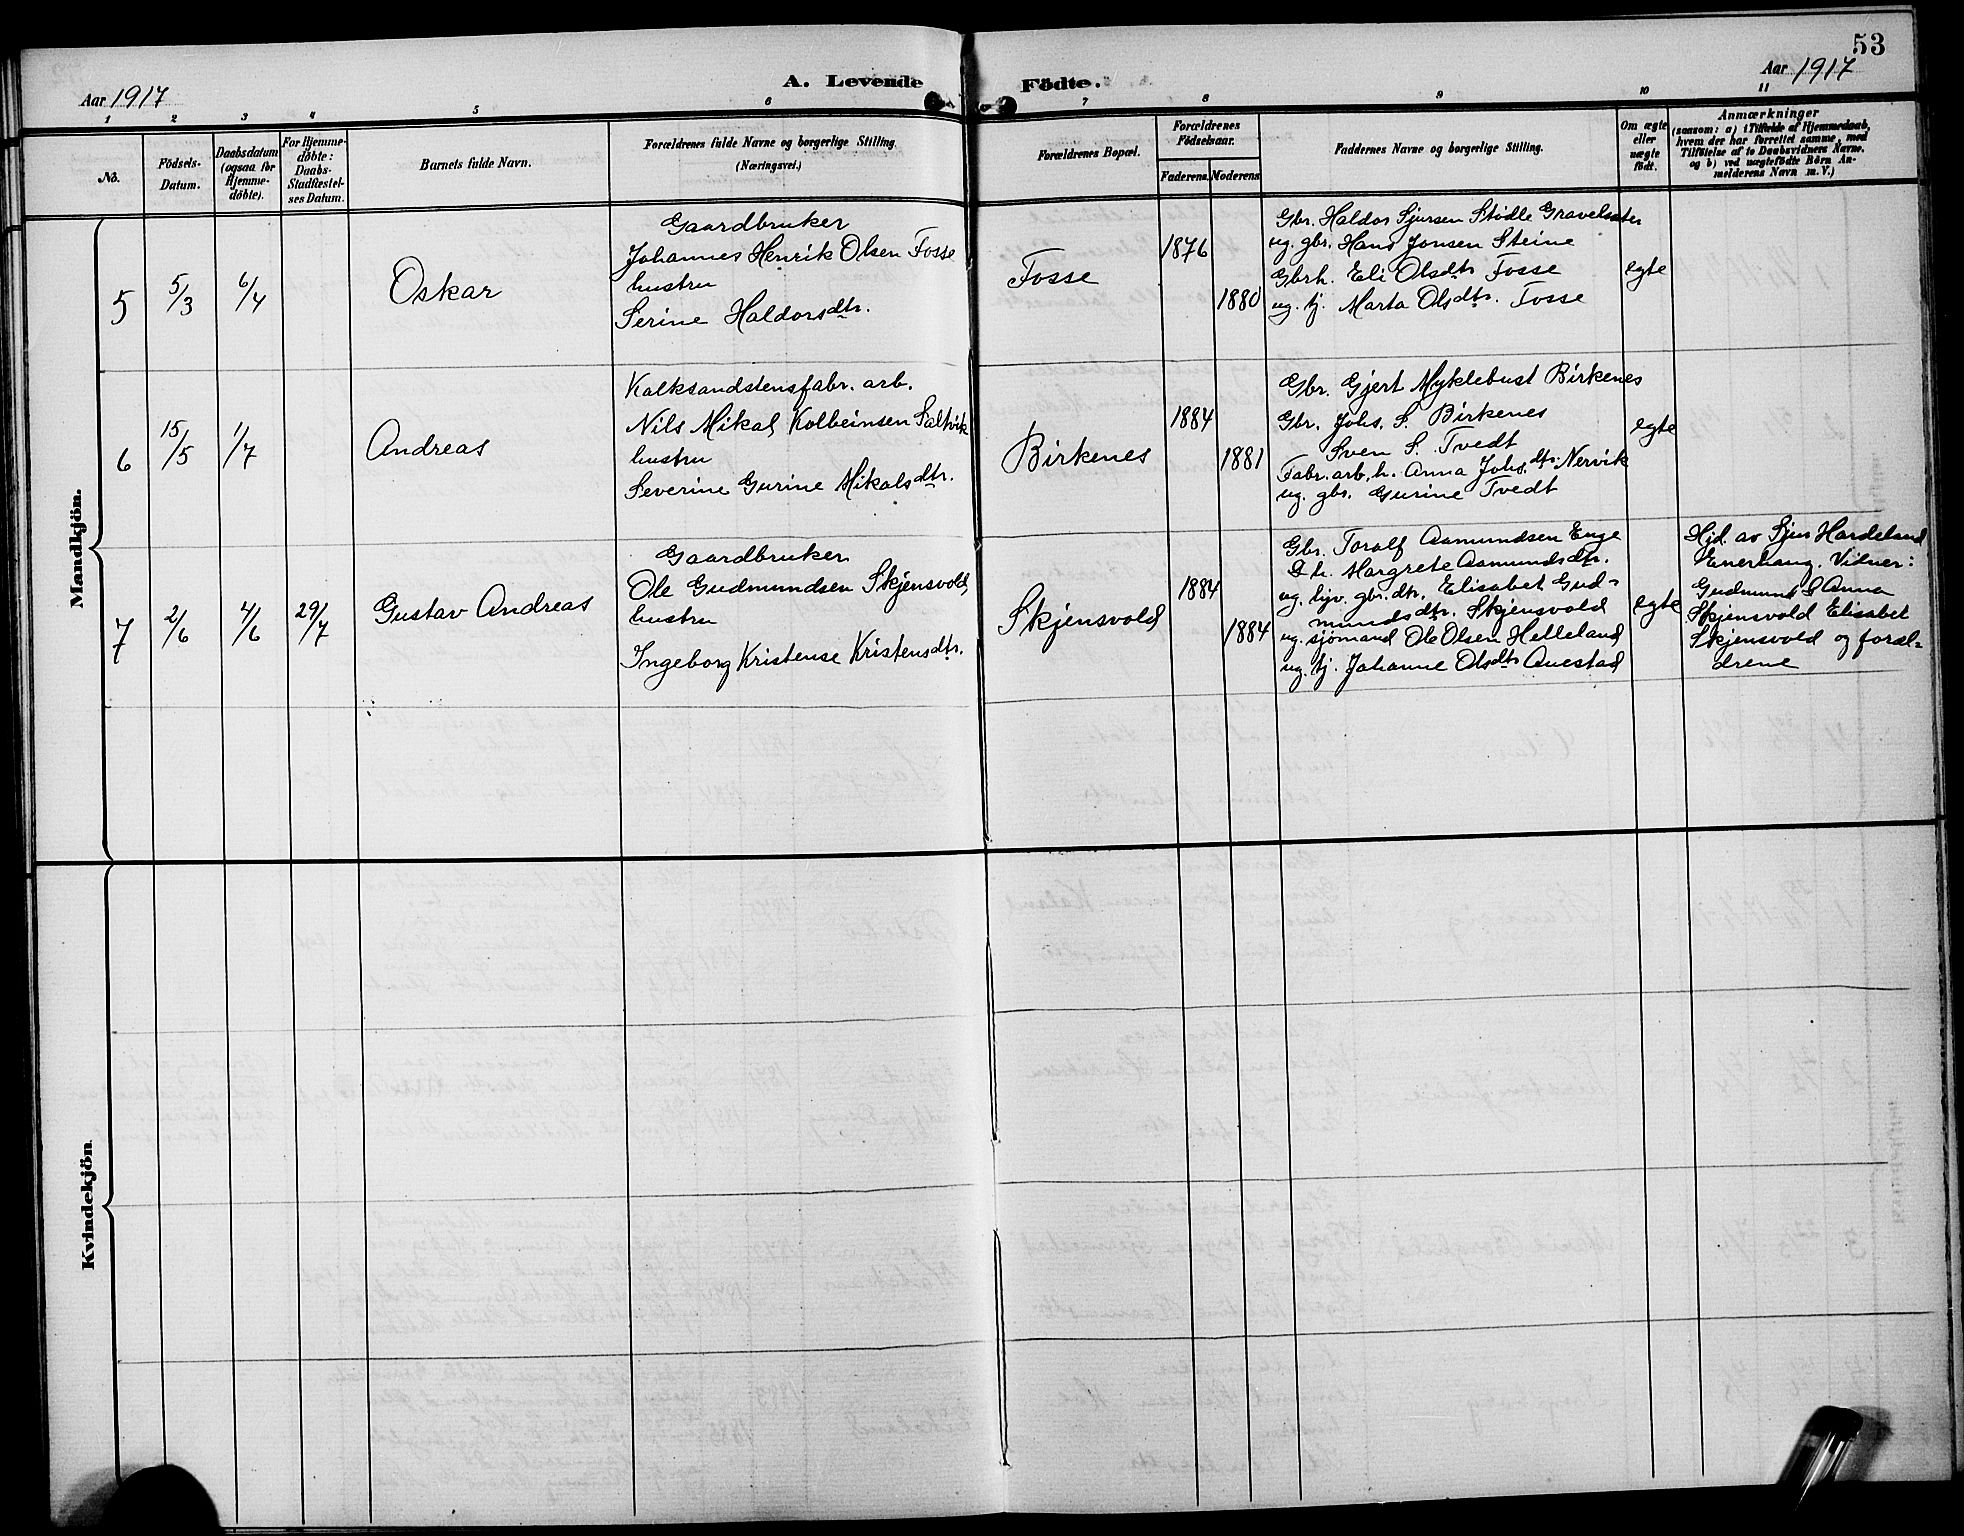 53
Aar 1917
A. Levende Födte.
Aar 1917
1 2 3 4 5 6 7 8 9 10 11
No.
Födsels-Datum.
Daabsdatum (ogsaa for Hjemme-döbte).
For Hjemme-döbte: Daabs-Stadfæstel-ses Datum.
Barnets fulde Navn.
Forældrenes fulde Navne og borgerlige Stilling.
(Næringsvei.)
Forældrenes Bopæl.
Forældrenes Födselsaar.
Faderens. Moderens.
Faddernes Navne og borgerlige Stilling.
Om ægte eller uægte födt.
Anmærkninger
(saasom: a) i Tilfælde af Hjemmedaab, hvem der har forrettet samme, med Tilföielse af to Daabsvidners Navne, og b) ved uægtefödte Börn An-melderens Navn m. V.)
Mandkjön.
5
5/3
6/4
Oskar
Gaardbruker
Johannes Henrik Olsen Fosse
hustru
Serine Haldorsdtr.
Fosse
1876
1880
Gbr. Haldor Sjursen Stødle Gravelsæter
ug. gbr. Hans Jonsen Steine
Gbrh. Eli Olsdtr Fosse
ug. tj. Marta Olsdtr. Fosse
egte
6
15/5
1/7
Andreas
Kalksandstensfabr. arb.
Nils Mikal Kolbeinsen Saltvik
hustru
Severine Gurine Mikalsdtr.
Birkenes
1884
1881
Gbr. Gjert Myklebust Birkenes
Gbr. Johs. S. Birkenes
Sven S. Tvedt
Fabr. arb. h. Anna Johs.dtr. Nervik
ug. gbr. Gurine Tvedt
egte
7
2/6
4/6
29/7
Gustav Andreas
Gaardbruker
Ole Gudmundsen Skjensvold,
hustru
Ingeborg Kristense Kristensdtr.
Skjensvold
1884
1884
Gbr. Toralf Aamundsen Enge
& h. Margrete Aamundsdtr.
ug. hjv. gbr. dtr. Elisabet Gud-
mundsdtr. Skjensvold
ug. sjömand Ole Olsen Helleland
ug. tj. Johanne Olsdtr Auestad
egte
Hjd. av Sjur Hardeland
Enerhaug. Vidner:
Gudmund & Anna
Skjensvold Elisabet
Skjensvold og foræl-
drene
Kvindekjön